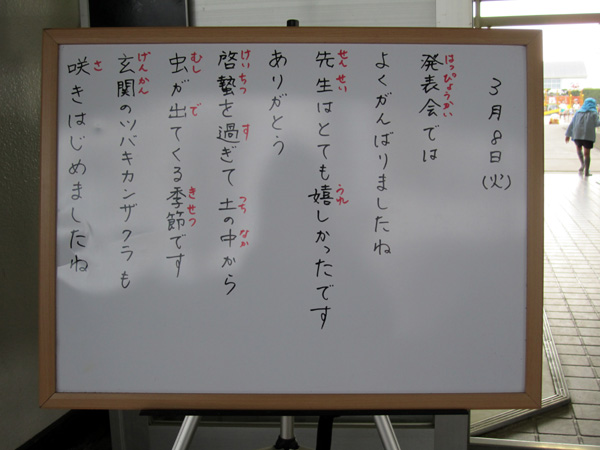 3月8日(火)
発表会では
よくがんばりましたね
先生はとても嬉しかったです
ありがとう
啓蟄を過ぎて土の中から
虫が出てくる季節です
玄関のツバキカンザクラも
咲きはじめましたね
はっぴょうかい
せんせい
うれ
けいちつ
す
つち
なか
むし
で
きせつ
げんかん
さ